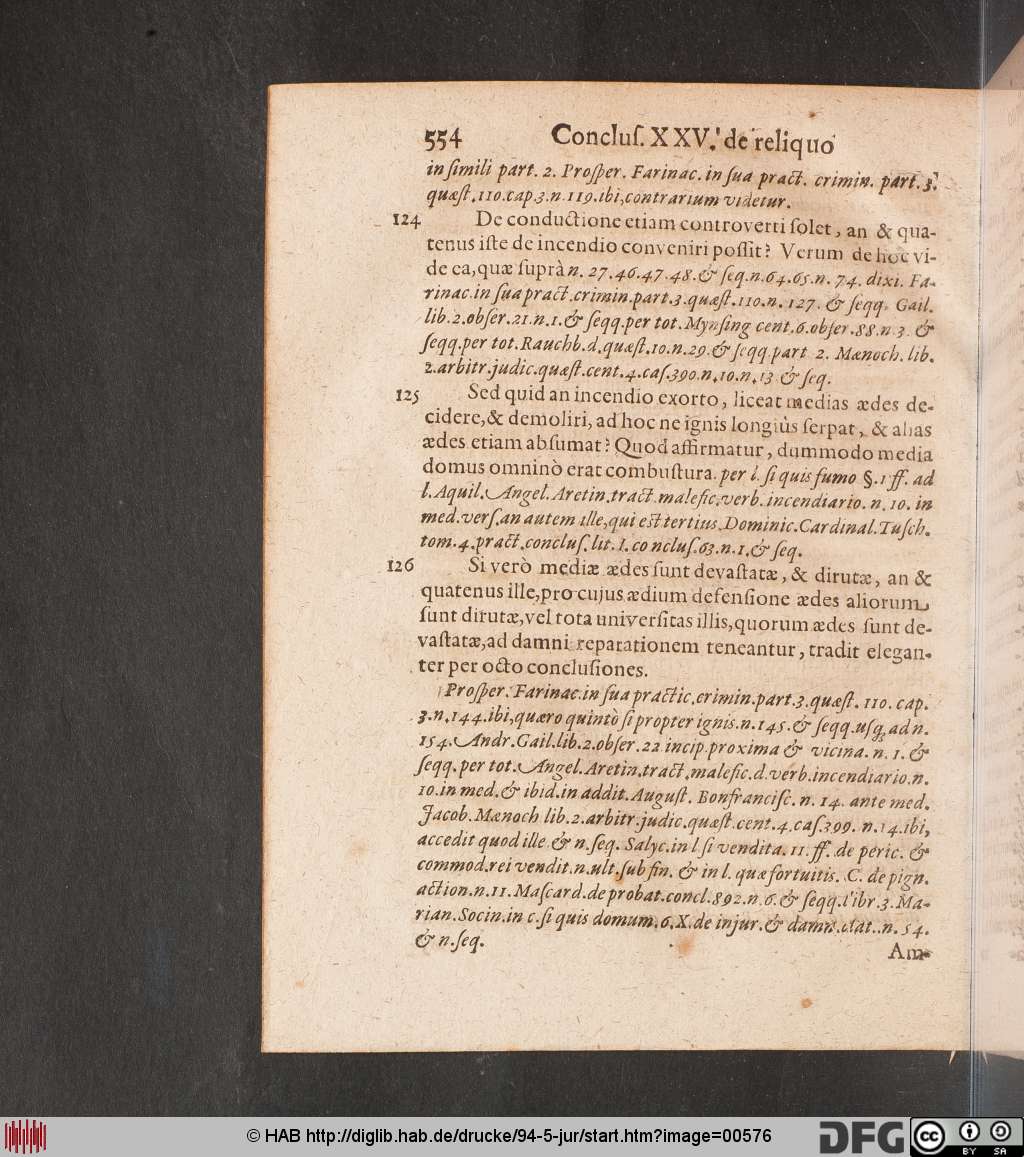 554 Concluſ. XXV. de reliquo
in ſimili part. 2. Proſper. Farinac. in ſua pract. crimin. part. 3.
quæſt. 110. cap. 3. n. 119. ibi, contrarium videtur.
124 De conductione etiam controverti ſolet, an & qua-
tenus iſte de incendio conveniri poſſit? Verum de hoc vi-
de ea, quæ ſuprà n. 27. 46. 47. 48. & ſeq. n. 64. 65. n. 74. dixi. Fa-
rinac. in ſua pract. crimin. part. 3. quæſt. 110. n. 127. & ſeqq. Gail.
lib. 2. obſer. 21. n. 1. & ſeqq. per tot. Mynſing cent. 6. obſer. 88. n. 3. &
ſeqq. per tot. Rauchb. d. quæſt. 10. n. 29. & ſeqq. part 2. Mænoch. lib.
2. arbitr. judic. quæſt. cent. 4. caſ. 390. n. 10. n. 13 & ſeq.
125 Sed quid an incendio exorto, liceat medias ædes de-
cidere, & demoliri, ad hoc ne ignis longiùs ſerpat, & alias
ædes etiam abſumat? Quod affirmatur, dummodo media
domus omninò erat combuſtura. per l. ſi quis fumo §. 1 ff. ad
l. Aquil. Angel. Aretin. tract. malefic. verb. incendiario. n. 10. in
med. verſ. an autem ille, qui est tertius. Dominic. Cardinal. Tuſch.
tom. 4. pract. concluſ. lit. I. concluſ. 63. n. 1. & ſeq.
126 Si verò mediæ ædes ſunt devaſtatæ, & dirutæ, an &
quatenus ille, pro cujus ædium defenſione ædes aliorum
ſunt dirutæ, vel tota univerſitas illis, quorum ædes ſunt de-
vaſtatæ, ad damni reparationem teneantur, tradit elegan-
ter per octo concluſiones.
Proſper. Farinac. in ſua practic. crimin. part. 3. quæſt. 110. cap.
3. n. 144. ibi, quæro quintò ſi propter ignis. n. 145. & ſeqq. uſq; ad n.
154. Andr. Gail. lib. 2. obſer. 22 incip. proxima & vicina. n. 1. &
ſeqq. per tot. Angel. Aretin. tract. malefic. d. verb. incendiario. n.
10. in med. & ibid. in addit. Auguſt. Bonfranciſc. n. 14. ante med.
Jacob. Mænoch lib. 2. arbitr. judic. quæſt. cent. 4. caſ. 399. n. 14. ibi,
accedit quod ille & n. ſeq. Salyc. in l. ſi vendita. 11. ff. de peric. &
commod. rei vendit. n. ult. ſub fin. & in l. quæ fortuitis. C. de pign.
action. n. 11. Maſcard. de probat. concl. 892. n. 6. & ſeqq. libr. 3. Ma-
rian. Socin. in c. ſi quis domum. 6. X. de injur. & damn. dat. n. 54.
& n. ſeq.
Am-
© HAB http://diglib.hab.de/drucke/94-5-jur/start.htm?image=00576
DFG cc BY SA